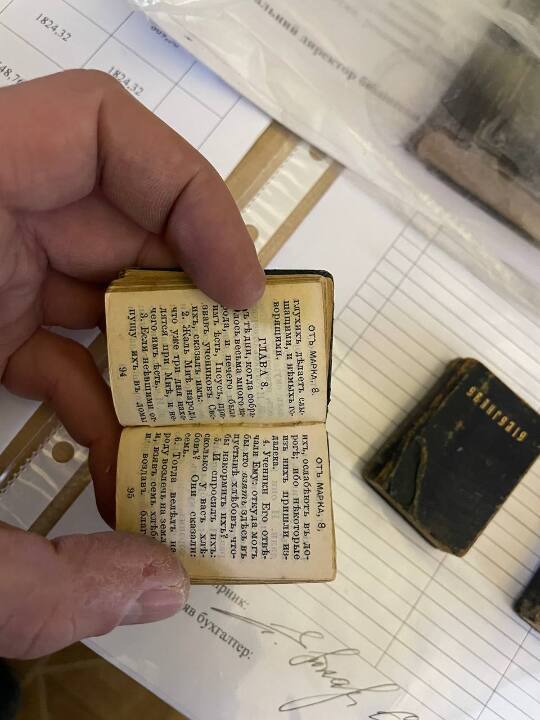 1824,32
1824,32
ОТЪ МАРКА, 8.
глухихъ дѣлаетъ слы-
шащими, и нѣмыхъ го-
ворящими.
ГЛАВА 8.
тѣ дни, когда собра-
лось весьма много
рода, и нечего был
имъ ѣсть, Іисусъ, при
звавъ учениковъ Сво
ихъ, сказалъ имъ:
2. Жаль Мнѣ народ
что уже три дня нахо
дятся при Мнѣ, и не
чего имъ ѣсть.
3. Если неѣвшими от
пущу ихъ въ домы
94
ОТЪ МАРКА, 8,
ихъ, ослабѣютъ въ до-
рогѣ, ибо нѣкоторые
изъ нихъ пришли из-
далека.
4. Ученики Его отвѣ-
чали Ему: откуда могъ
бы кто взять здѣсь въ
пустынѣ хлѣбовъ, что-
бы накормить ихъ?
5. И спросилъ ихъ:
сколько у васъ хлѣ-
бовъ? Они сказали:
6. Тогда велѣлъ на
роду возлечь на земл
и, взявъ семь хлѣбо
и, воздавъ благ
95
директор
бухгалтер: